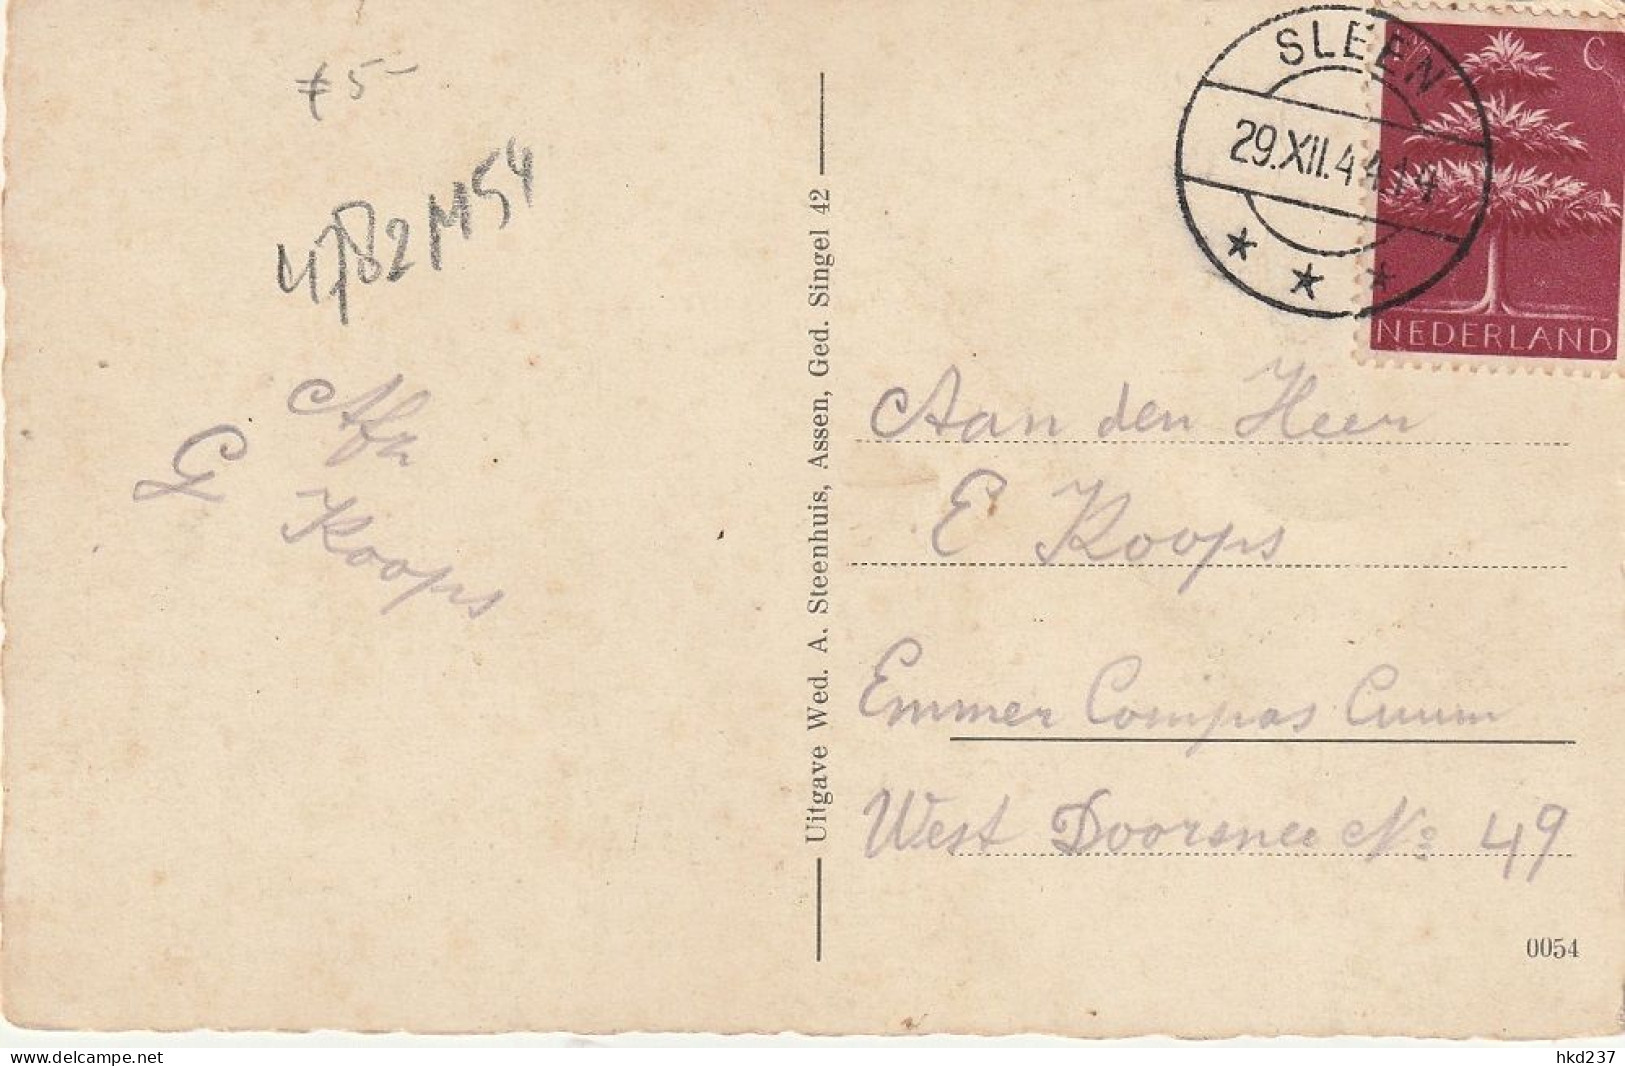 f 5-
4782 M54
Afz
G Koops
Uitgave Wed. A. Steenhuis, Assen, Ged. Singel 42
SLEEN
29.XII.44.14
C
NEDERLAND
Aan den Heer
E Koops
Emmer Compas Cuum
West Doorsnee No 49
0054
delcampe.net
hkd237